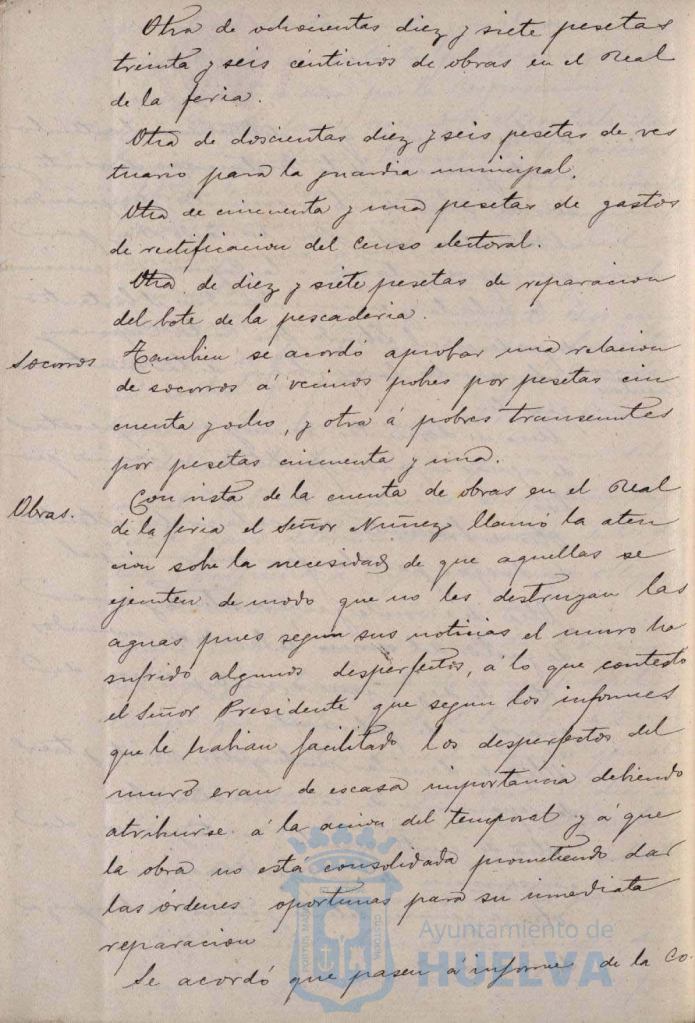 Otra de ochocientas diez y siete pesetas
treinta y seis céntimos de obras en el Real
de la feria.
Otra de doscientas diez y seis pesetas de ves
tuario para la guardia municipal.
Otra de cincuenta y una pesetas de gastos
de rectificacion del censo electoral.
Otra de diez y siete pesetas de reparacion
del bote de la pescaderia.
Socorros
Tambien se acordó aprobar una relacion
de socorros á vecinos pobres por pesetas cin
cuenta y ocho, y otra á pobres transeuntes
por pesetas cincuenta y una.
Obras.
Con vista de la cuenta de obras en el Real
de la feria el Señor Nuñez llamó la aten
cion sobre la necesidad de que aquellas se
ejecuten de modo que no les destruyan las
aguas pues segun sus noticias el muro ha
sufrido algunos desperfectos, á lo que contestó
el Señor Presidente que segun los informes
que le habian facilitado los desperfectos del
muro eran de escasa importancia debiendo
atribuirse á la accion del temporal y á que
la obra no está consolidada prometiendo dar
las órdenes oportunas para su inmediata
reparacion
Se acordó que pasen á informe de la Co-
Ayuntamiento de
HUELVA